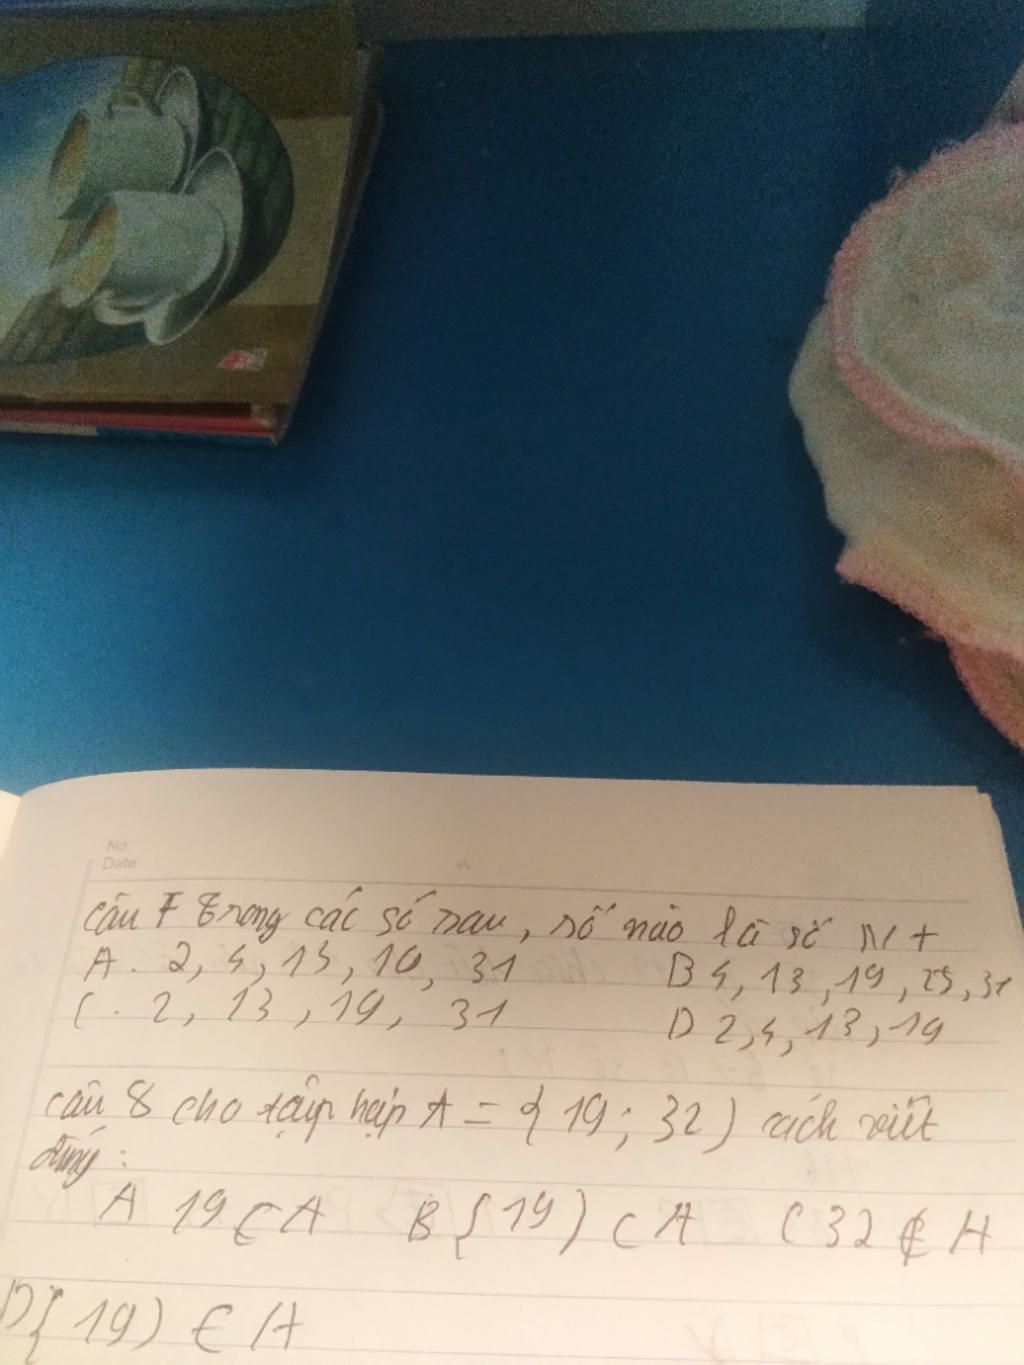 No.
Date
Câu 7 Trong các số sau, số nào là số NT
A. 2, 5, 13, 19, 31 B 5, 13, 19, 25, 31
C. 2, 13, 19, 31 D 2, 5, 13, 19
câu 8 cho tập hợp A = { 19 ; 32 ) cách viết
đúng :
A 19 ⊂ A B { 19 ) ⊂ A C 32 ∉ A
D { 19 ) ∈ A